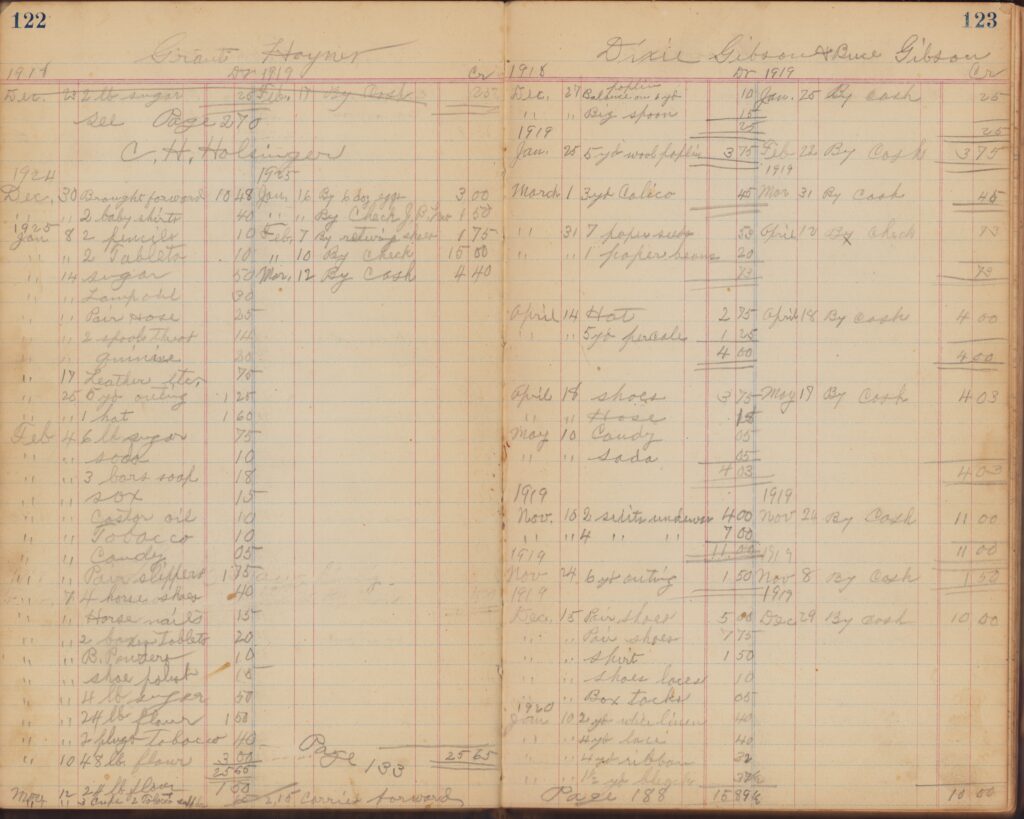 122
Grant Hoyner
1918 Dr 1919 Cr
Dec. 23 2 lb sugar 25 Feb. 17 By Cash 25
see Page 270
C. H. Holsinger
1924 1925
Dec. 30 Brought forward 10 48 Jan. 16 By 6 doz eggs 3.00
" " 2 baby shirts 40 " " By Check J.P. 1 50
1925
Jan 8 2 pencils 10 Feb. 7 By returning shoes 1 75
" " 2 Tablets 10 " 10 By Check 15 00
" 14 sugar 50 Mar. 12 By Cash 4 40
" " Lamp oil 30
" " Pair Hose 25
" " 2 spools thread 14
" " quinine 20
" 17 Leather Etc. 75
" 26 5 yd outing 1 25
" " 1 hat 1 60
Feb 4 6 lb sugar 75
" " soda 10
" " 3 bars soap 18
" " sox 15
" " Castor oil 10
" " Tobacco 10
" " Candy 05
" " Pair slippers 1 75
" 7 4 horse shoes 40
" " Horse nails 15
" " 2 boxes tablets 20
" " B. Powders 10
" " shoe polish 15
" " 4 lb sugar 50
" " 24 lb flour 1 50
" " 2 plugs tobacco 40
" 10 48 lb flour 3 00 Page 133 25 65
25 65
12 24 lb flour 1 50
" " 2 Tobacco 2.15 Carried forward
123
Dixie Gibson & Buse Gibson
1918 Dr 1919 Cr
Dec. 27 Balance on 5 yd poplin 10 Jan. 25 By Cash 25
" " Big spoon 15
25 25
1919
Jan. 25 5 yd wool poplin 3 75 Feb 22 By Cash 3 75
1919
March 1 3 yd Calico 45 Mar 31 By Cash 45
" 31 7 paper seeds 50 April 12 By Check 73
" " 1 paper beans 20
73 73
April 14 Hat 2 75 April 18 By Cash 4 00
" " 5 yd percale 1 25
4 00 4 00
April 18 shoes 3 75 May 19 By Cash 4 03
" " Hose 18
May 10 Candy 05
" " soda 05
4 03 4 03
1919 1919
Nov. 10 2 suits underwear 4 00 Nov 24 By Cash 11 00
" " 4 " " 7 00
11.00 11 00
1919 1919
Nov 24 6 yd outing 1 50 Nov 8 By Cash 1 50
1919 1919
Dec. 15 Pair shoes 5 00 Dec 29 By Cash 10 00
" " Pair shoes 7 75
" " shirt 1 50
" " shoes laces 10
" " Box tacks 05
1920
Jan. 10 2 yd white linen 40
" " 4 yd lace 40
" " 4 yd ribbon 32
" " 1½ yd 37½
Page 188 15 89½ 10 00